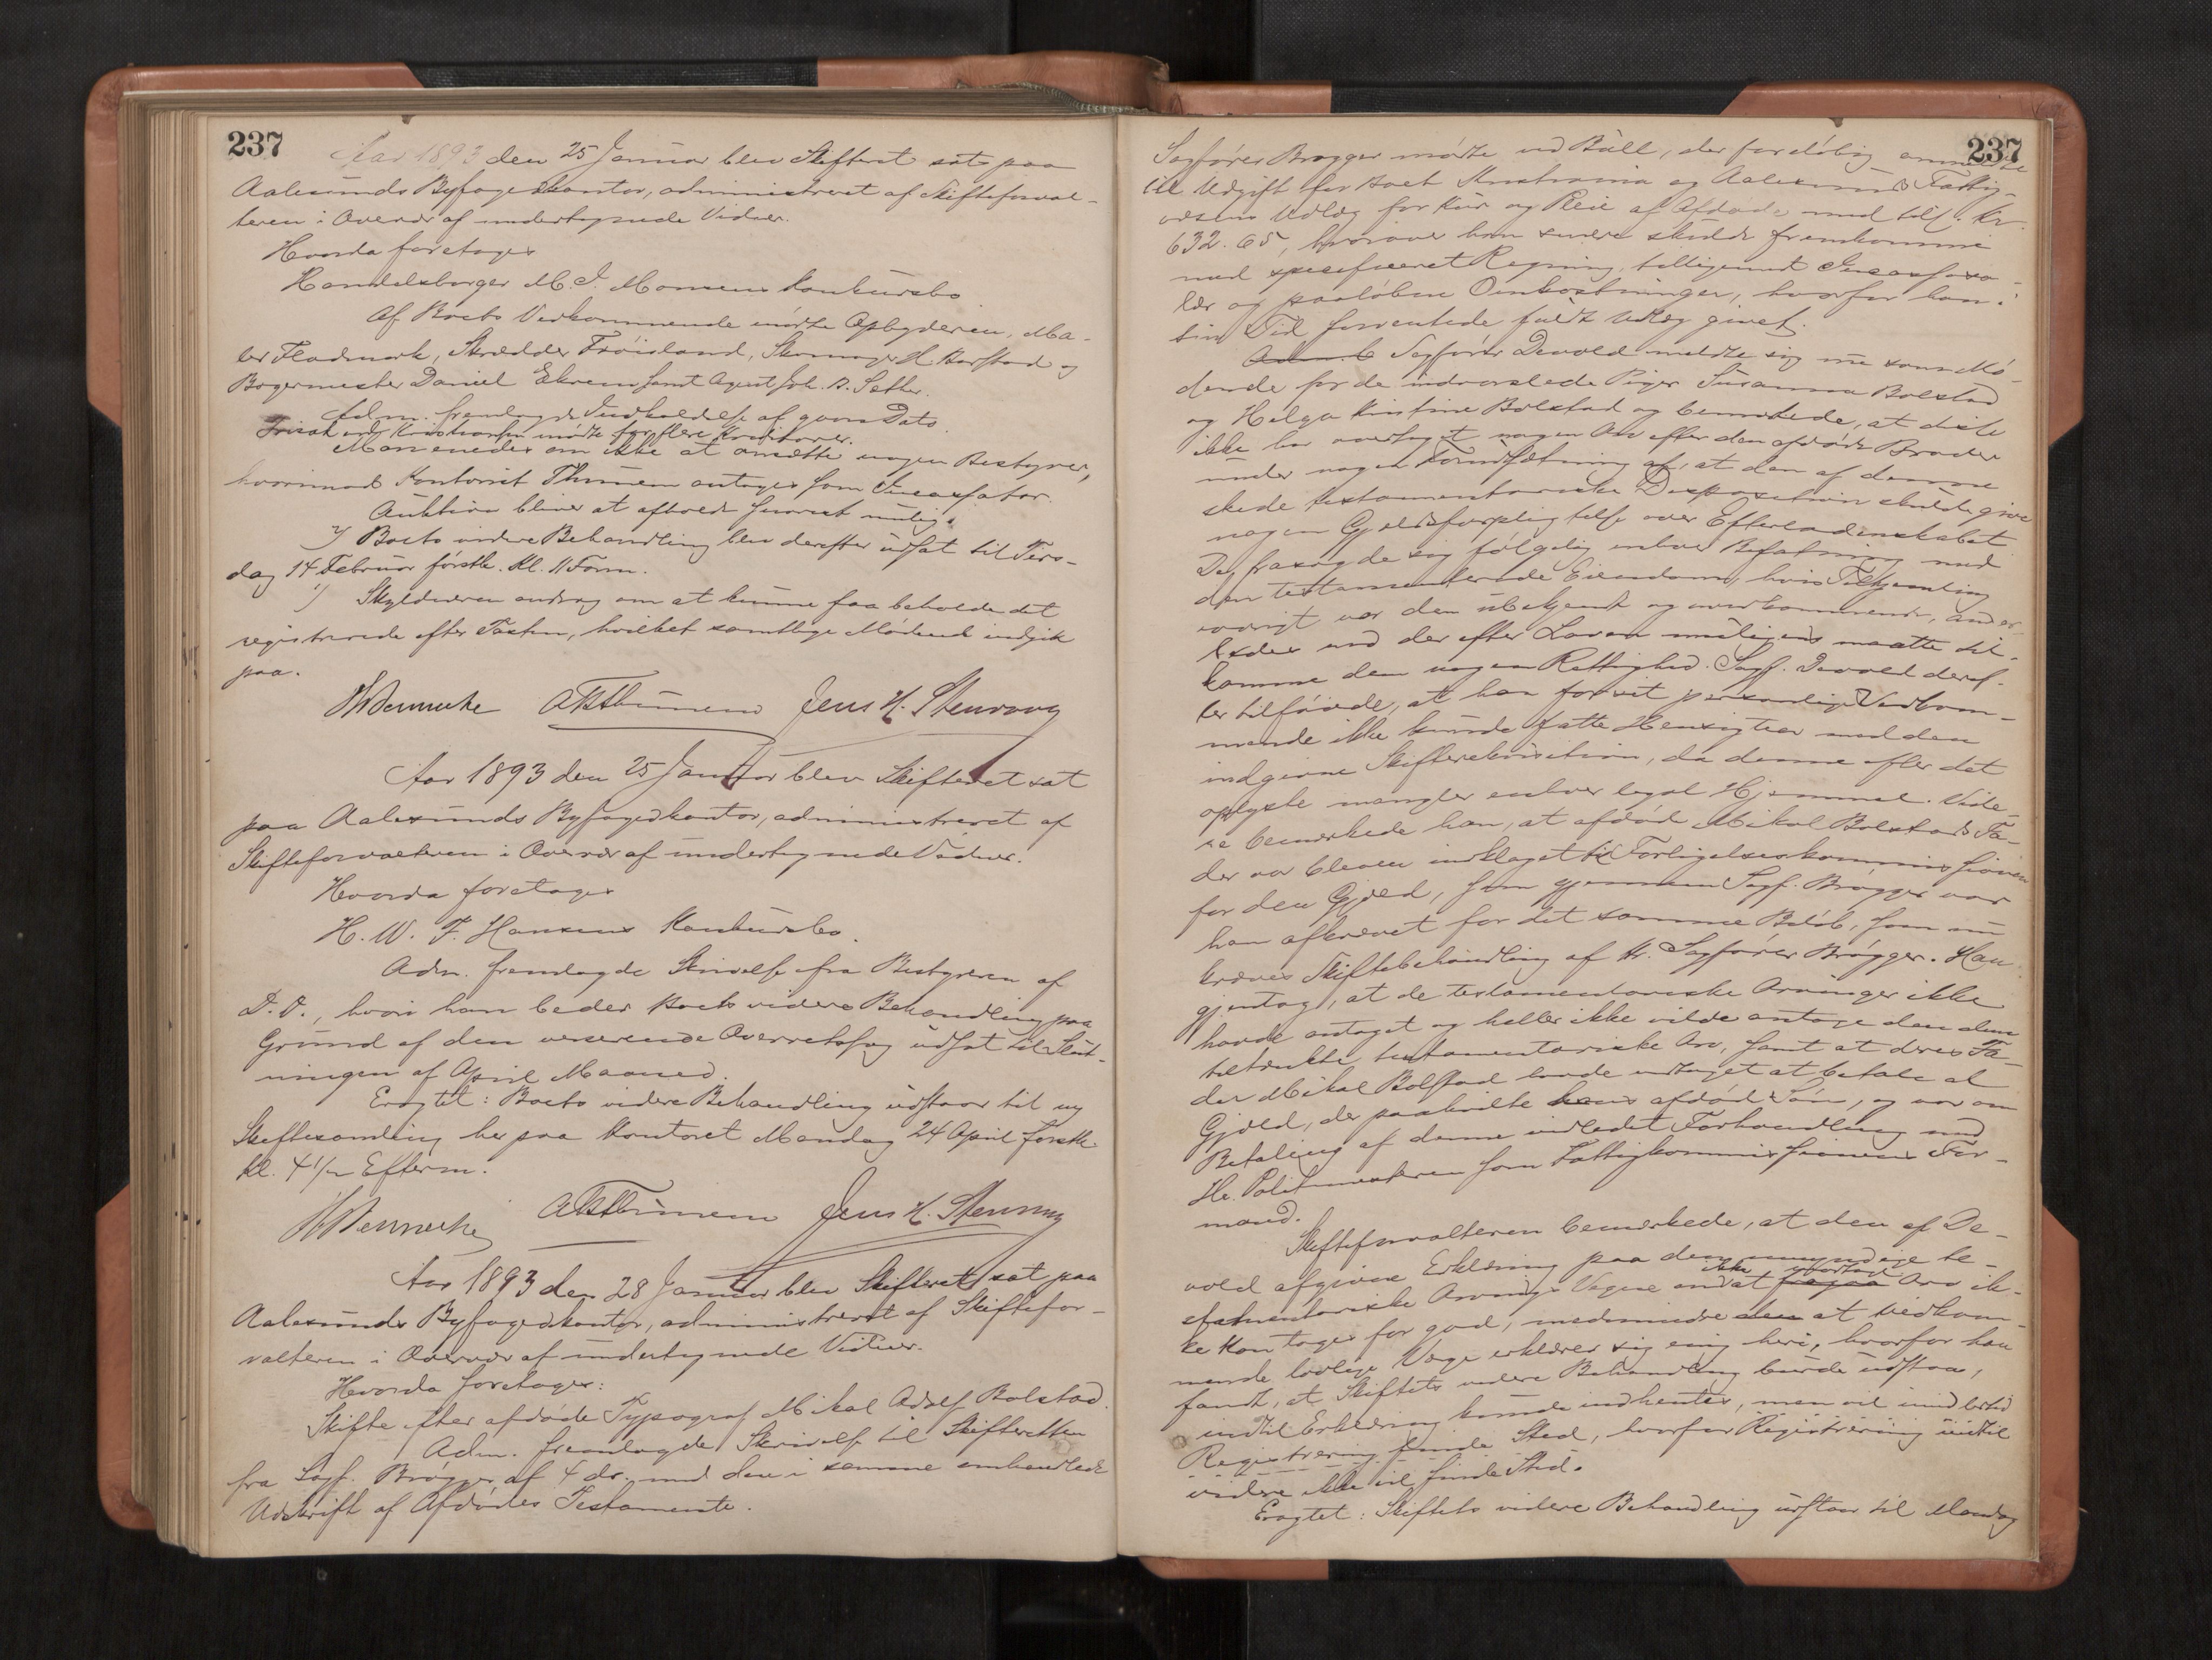 237
Aar 1893 den 25 Januar blev Skifteret sat paa
Aalesunds Byfogedkontor, administreret af Skifteforval-
teren i Overvær af undertegnede Vidner.
Hvorda foretoges
Handelsborger M. J. Monsens Konkursbo.
Af Boets Vedkommende mødte Opbyderen, Ma-
ler Fladmark, Skrædder Frøisland, Skomager H. Harstad og
Bagermester Daniel Ekrem samt Agent Joh. A. Sætter.
Adm. fremlagde Indkaldelse af gaars Dato.
Kristiansen mødte for flere Kreditorer.
Man enedes om ikke at ansætte nogen Bestyrer,
hvorimod Kontorist Thunem antoges som Incassator.
Auktion bliver at afholde snarest mulig.
2) Boets videre Behandling blev derefter udsat til Tirs-
dag 14 Februar førstk. Kl. 11 Form.
1) Skyldneren androg om at kunne faa beholde det
registrerede efter Taxten, hvilket samtlige Mødende indgik
paa.
Wennecke AThunem Jens H. Stenvaag
Aar 1893 den 25 Januar blev Skifteret sat
paa Aalesunds Byfogedkontor, administreret af
Skifteforvalteren i Overvær af undertegnede Vidner.
Hvorda foretoges
H. W. F. Hansens Konkursbo.
Adm. fremlagde Skrivelse fra Bestyreren af
D. D., hvori han beder Boets videre Behandling paa
Grund af den verserende Overretssag udsat til Slut-
ningen af April Maaned.
Eragtet: Boets videre Behandling udstaar til ny
Skiftesamling her paa Kontoret Mandag 24 April førstk.
kl. 4 1/2 Efterm.
Wennecke AThunem Jens H. Stenvaag
Aar 1893 den 28 Januar blev Skifteret sat paa
Aalesunds Byfogedkontor, administreret af Skiftefor-
valteren i Overvær af undertegnede Vidner.
Hvorda foretoges:
Skifte efter afdøde Typograf Mikal Adolf Bolstad.
Adm. fremlagde Skrivelse til Skifteretten
fra Sagf. Brøgger af 4 ds. med den i samme omhandlede
Udskrift af Afdødes Testamente.
237
Sagfører Brøgger mødte ved Bull, der foreløbig anmeldte
til Udgift for Boet Kristiania og Aalesunds Fattig-
væsens Udlæg for Kur og Pleie af Afdøde med tils. Kr.
632.65, hvorover han senere skulde fremkomme
med specificeret Regning tilligemed Incassosa-
lær og paaløbne Omkostninger, hvorfor han i
sin Tid forventede fuldt Udlæg givet.
Sagfører Devold meldte sig nu som Mø-
dende for de indvarslede Piger Susanna Bolstad
og Helga Kristine Bolstad og bemærkede, at disse
ikke har overtaget nogen Arv efter den afdøde Broder
under nogen Forudsætning af, at den af denne
skede testamentariske Disposition skulde give
nogen Gjeldsforpligtelse over Efterladenskabet
De frasagde sig følgelig enhver Befatning med
den testamenterede Eiendom, hvis Tilhjemling
iøvrigt var dem ubekjendt og uvedkommende, ander-
ledes end der efter Loven muligens maatte til-
komme dem nogen Rettighed. Sagf. Devold deref-
ter tilføiede, at han for sit personlige Vedkom-
mende ikke kunde fatte Hensigten med den
indgivne Skifterekvisition, da denne efter det
oplyste mangler enhver legal Hjemmel. Vide-
re bemærkede han, at afdøde Mikal Bolstads Fa-
der var bleven indklaget til Forligelseskommissionen
for den Gjæld, som gjennem Sagf. Brøgger var
ham afkrævet for det samme Beløb, som nu
kræves Skiftebehandling af Hr. Sagfører Brøgger. Han
gjentog, at de testamentariske Arvinger ikke
havde antaget og heller ikke vilde antage den dem
tiltænkte testamentariske Arv, samt at deres Fa-
der Mikal Bolstad havde vedtaget at betale al
Gjæld, der paahvilte hans afdøde Søn, og var om
Betaling af denne indledet Forhandling med
Hr. Politimesteren som Fattigkommissionens For-
mand.
Skifteforvalteren bemærkede, at den af De-
vold afgivne Erklæring paa den umyndige te-
stamentariske Arvings Vegne at Arv ik-
ke kan tages for god, medmindre at vedkom-
mende lovlige Værge erklærer sig enig heri, hvorfor han
fandt, at Skiftets videre Behandling burde udstaa,
indtil Erklæring kunde indhentes, men vil imidlertid
Registrering finde Sted, hvorfor Registrering indtil
videre ikke vil finde Sted.
Eragtet: Skiftets videre Behandling udstaar til Mandag